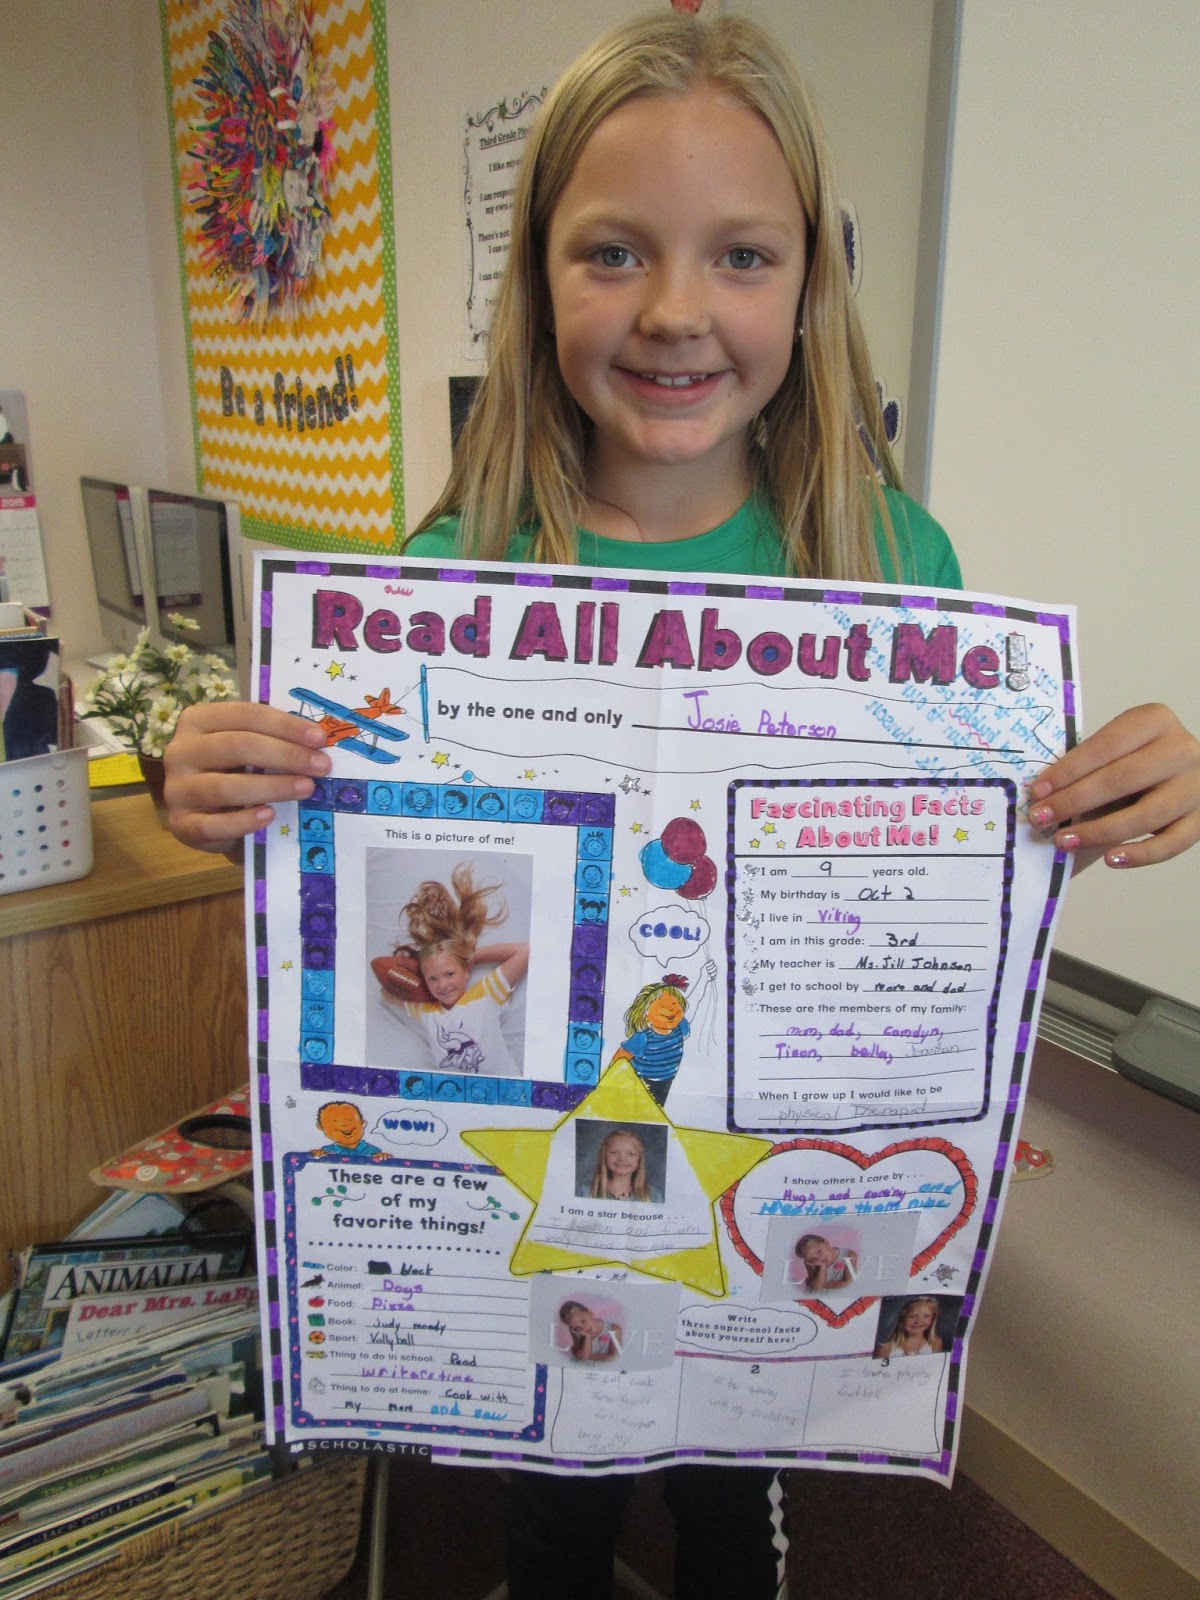 Be a friend!
2015
Third Grade Ple
I like mys
I am respon
my own a
There's not
I can no
I can thin
Read All About Me!
by the one and only Josie Peterson
This is a picture of me!
COOL!
Fascinating Facts
About Me!
I am 9 years old.
My birthday is Oct 2
I live in Viking
I am in this grade: 3rd
My teacher is Ms. Jill Johnson
I get to school by mom and dad
These are the members of my family:
mom, dad, Camdyn,
Jonathan
When I grow up I would like to be
physical
WOW!
These are a few
of my
favorite things!
Color: black
Animal: Dogs
Food: Pizza
Book: Judy moody
Sport: Vollyball
Thing to do in school: Read
writers time
Thing to do at home: Cook with
my mom and sew
I am a star because . . .
I listen and I am
very
I show others I care by . . .
Hugs and caring and
them nice
LOVE
LOVE
Write
three super-cool facts
about yourself here!
2
3
I can cook
some foods
for supper
with my
I love playing
football
SCHOLASTIC
ANIMALIA
Dear Mrs. LaRue
Letters
JACK PRELUTSKY